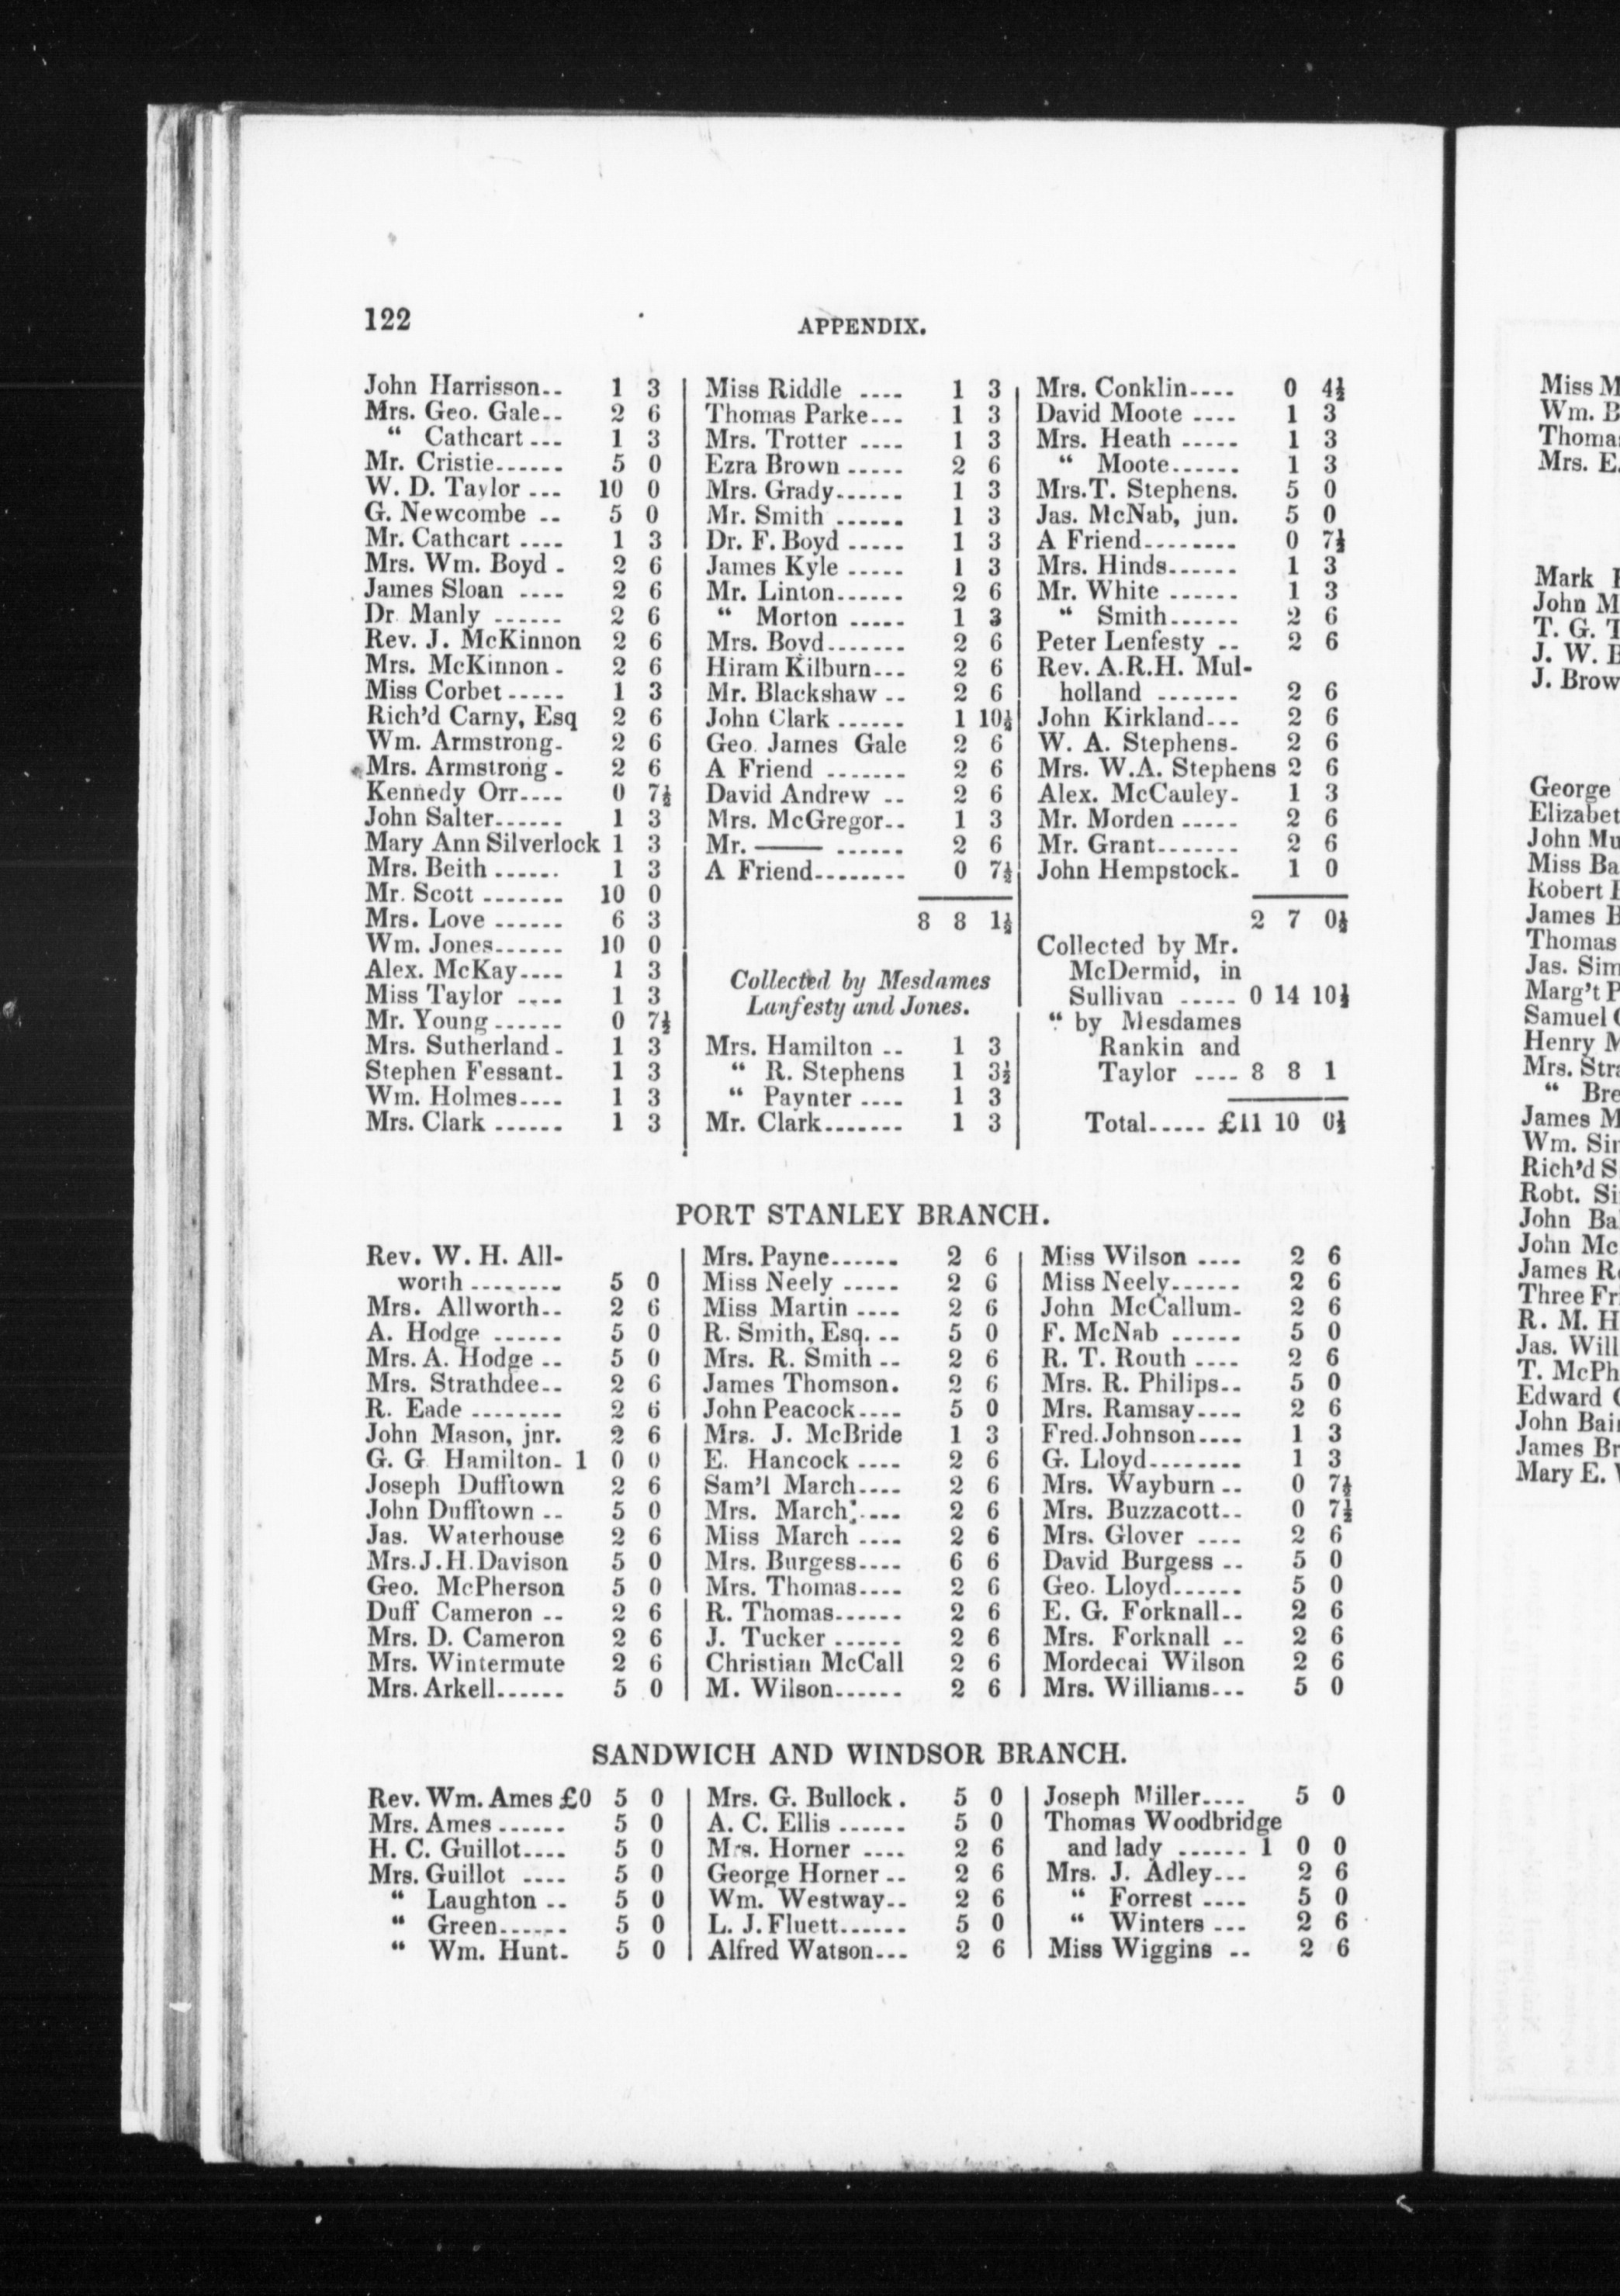 122
APPENDIX.
John Harrisson-- 1 3
Mrs. Geo. Gale-- 2 6
“ Cathcart --- 1 3
Mr. Cristie------ 5 0
W. D. Taylor --- 10 0
G. Newcombe -- 5 0
Mr. Cathcart ---- 1 3
Mrs. Wm. Boyd - 2 6
James Sloan ---- 2 6
Dr. Manly ------ 2 6
Rev. J. McKinnon 2 6
Mrs. McKinnon - 2 6
Miss Corbet ----- 1 3
Rich'd Carny, Esq 2 6
Wm. Armstrong- 2 6
Mrs. Armstrong - 2 6
Kennedy Orr---- 0 7½
John Salter------ 1 3
Mary Ann Silverlock 1 3
Mrs. Beith ------ 1 3
Mr. Scott ------- 10 0
Mrs. Love ------ 6 3
Wm. Jones------ 10 0
Alex. McKay---- 1 3
Miss Taylor ---- 1 3
Mr. Young ------ 0 7½
Mrs. Sutherland - 1 3
Stephen Fessant- 1 3
Wm. Holmes---- 1 3
Mrs. Clark ------ 1 3
Miss Riddle ---- 1 3
Thomas Parke--- 1 3
Mrs. Trotter ---- 1 3
Ezra Brown ----- 2 6
Mrs. Grady------ 1 3
Mr. Smith ------ 1 3
Dr. F. Boyd ----- 1 3
James Kyle ----- 1 3
Mr. Linton------ 2 6
“ Morton ----- 1 3
Mrs. Boyd------- 2 6
Hiram Kilburn--- 2 6
Mr. Blackshaw -- 2 6
John Clark ------ 1 10½
Geo. James Gale 2 6
A Friend ------- 2 6
David Andrew -- 2 6
Mrs. McGregor-- 1 3
Mr. —— ------ 2 6
A Friend-------- 0 7½
8 8 1½
Collected by Mesdames
Lanfesty and Jones.
Mrs. Hamilton -- 1 3
“ R. Stephens 1 3½
“ Paynter ---- 1 3
Mr. Clark------- 1 3
Mrs. Conklin---- 0 4½
David Moote ---- 1 3
Mrs. Heath ----- 1 3
“ Moote------ 1 3
Mrs.T. Stephens. 5 0
Jas. McNab, jun. 5 0
A Friend-------- 0 7½
Mrs. Hinds------ 1 3
Mr. White ------ 1 3
“ Smith------ 2 6
Peter Lenfesty -- 2 6
Rev. A.R.H. Mul-
holland ------- 2 6
John Kirkland--- 2 6
W. A. Stephens- 2 6
Mrs. W.A. Stephens 2 6
Alex. McCauley- 1 3
Mr. Morden ----- 2 6
Mr. Grant------- 2 6
John Hempstock- 1 0
2 7 0½
Collected by Mr.
McDermid, in
Sullivan ----- 0 14 10½
“ by Mesdames
Rankin and
Taylor ---- 8 8 1
Total----- £11 10 0½
PORT STANLEY BRANCH.
Rev. W. H. All-
worth -------- 5 0
Mrs. Allworth-- 2 6
A. Hodge ------ 5 0
Mrs. A. Hodge -- 5 0
Mrs. Strathdee-- 2 6
R. Eade -------- 2 6
John Mason, jnr. 2 6
G. G Hamilton- 1 0 0
Joseph Dufftown 2 6
John Dufftown -- 5 0
Jas. Waterhouse 2 6
Mrs.J.H.Davison 5 0
Geo. McPherson 5 0
Duff Cameron -- 2 6
Mrs. D. Cameron 2 6
Mrs. Wintermute 2 6
Mrs. Arkell------ 5 0
Mrs. Payne------ 2 6
Miss Neely ----- 2 6
Miss Martin ---- 2 6
R. Smith, Esq. -- 5 0
Mrs. R. Smith -- 2 6
James Thomson. 2 6
John Peacock---- 5 0
Mrs. J. McBride 1 3
E. Hancock ---- 2 6
Sam'l March---- 2 6
Mrs. March ---- 2 6
Miss March ---- 2 6
Mrs. Burgess---- 6 6
Mrs. Thomas---- 2 6
R. Thomas------ 2 6
J. Tucker ------ 2 6
Christian McCall 2 6
M. Wilson------ 2 6
Miss Wilson ---- 2 6
Miss Neely------ 2 6
John McCallum- 2 6
F. McNab ------ 5 0
R. T. Routh ---- 2 6
Mrs. R. Philips-- 5 0
Mrs. Ramsay---- 2 6
Fred. Johnson---- 1 3
G. Lloyd-------- 1 3
Mrs. Wayburn -- 0 7½
Mrs. Buzzacott-- 0 7½
Mrs. Glover ---- 2 6
David Burgess -- 5 0
Geo. Lloyd------ 5 0
E. G. Forknall-- 2 6
Mrs. Forknall -- 2 6
Mordecai Wilson 2 6
Mrs. Williams--- 5 0
SANDWICH AND WINDSOR BRANCH.
Rev. Wm. Ames £0 5 0
Mrs. Ames ------ 5 0
H. C. Guillot---- 5 0
Mrs. Guillot ---- 5 0
“ Laughton -- 5 0
“ Green------ 5 0
“ Wm. Hunt- 5 0
Mrs. G. Bullock . 5 0
A. C. Ellis ------ 5 0
Mrs. Horner ---- 2 6
George Horner -- 2 6
Wm. Westway-- 2 6
L. J. Fluett------ 5 0
Alfred Watson--- 2 6
Joseph Miller---- 5 0
Thomas Woodbridge
and lady ------ 1 0 0
Mrs. J. Adley--- 2 6
“ Forrest ---- 5 0
“ Winters --- 2 6
Miss Wiggins -- 2 6
Miss M
Wm. B
Thomas
Mrs. E.
Mark
John M
T. G. T
J. W. B
J. Brow
George
Elizabet
John Mu
Miss Ba
Robert
James H
Thomas
Jas. Sim
Marg't P
Samuel
Henry M
Mrs. Stra
“ Bre
James M
Wm. Sin
Rich'd S
Robt. Si
John Ba
John Mc
James R
Three Fr
R. M. H
Jas. Will
T. McPh
Edward
John Bai
James Br
Mary E.